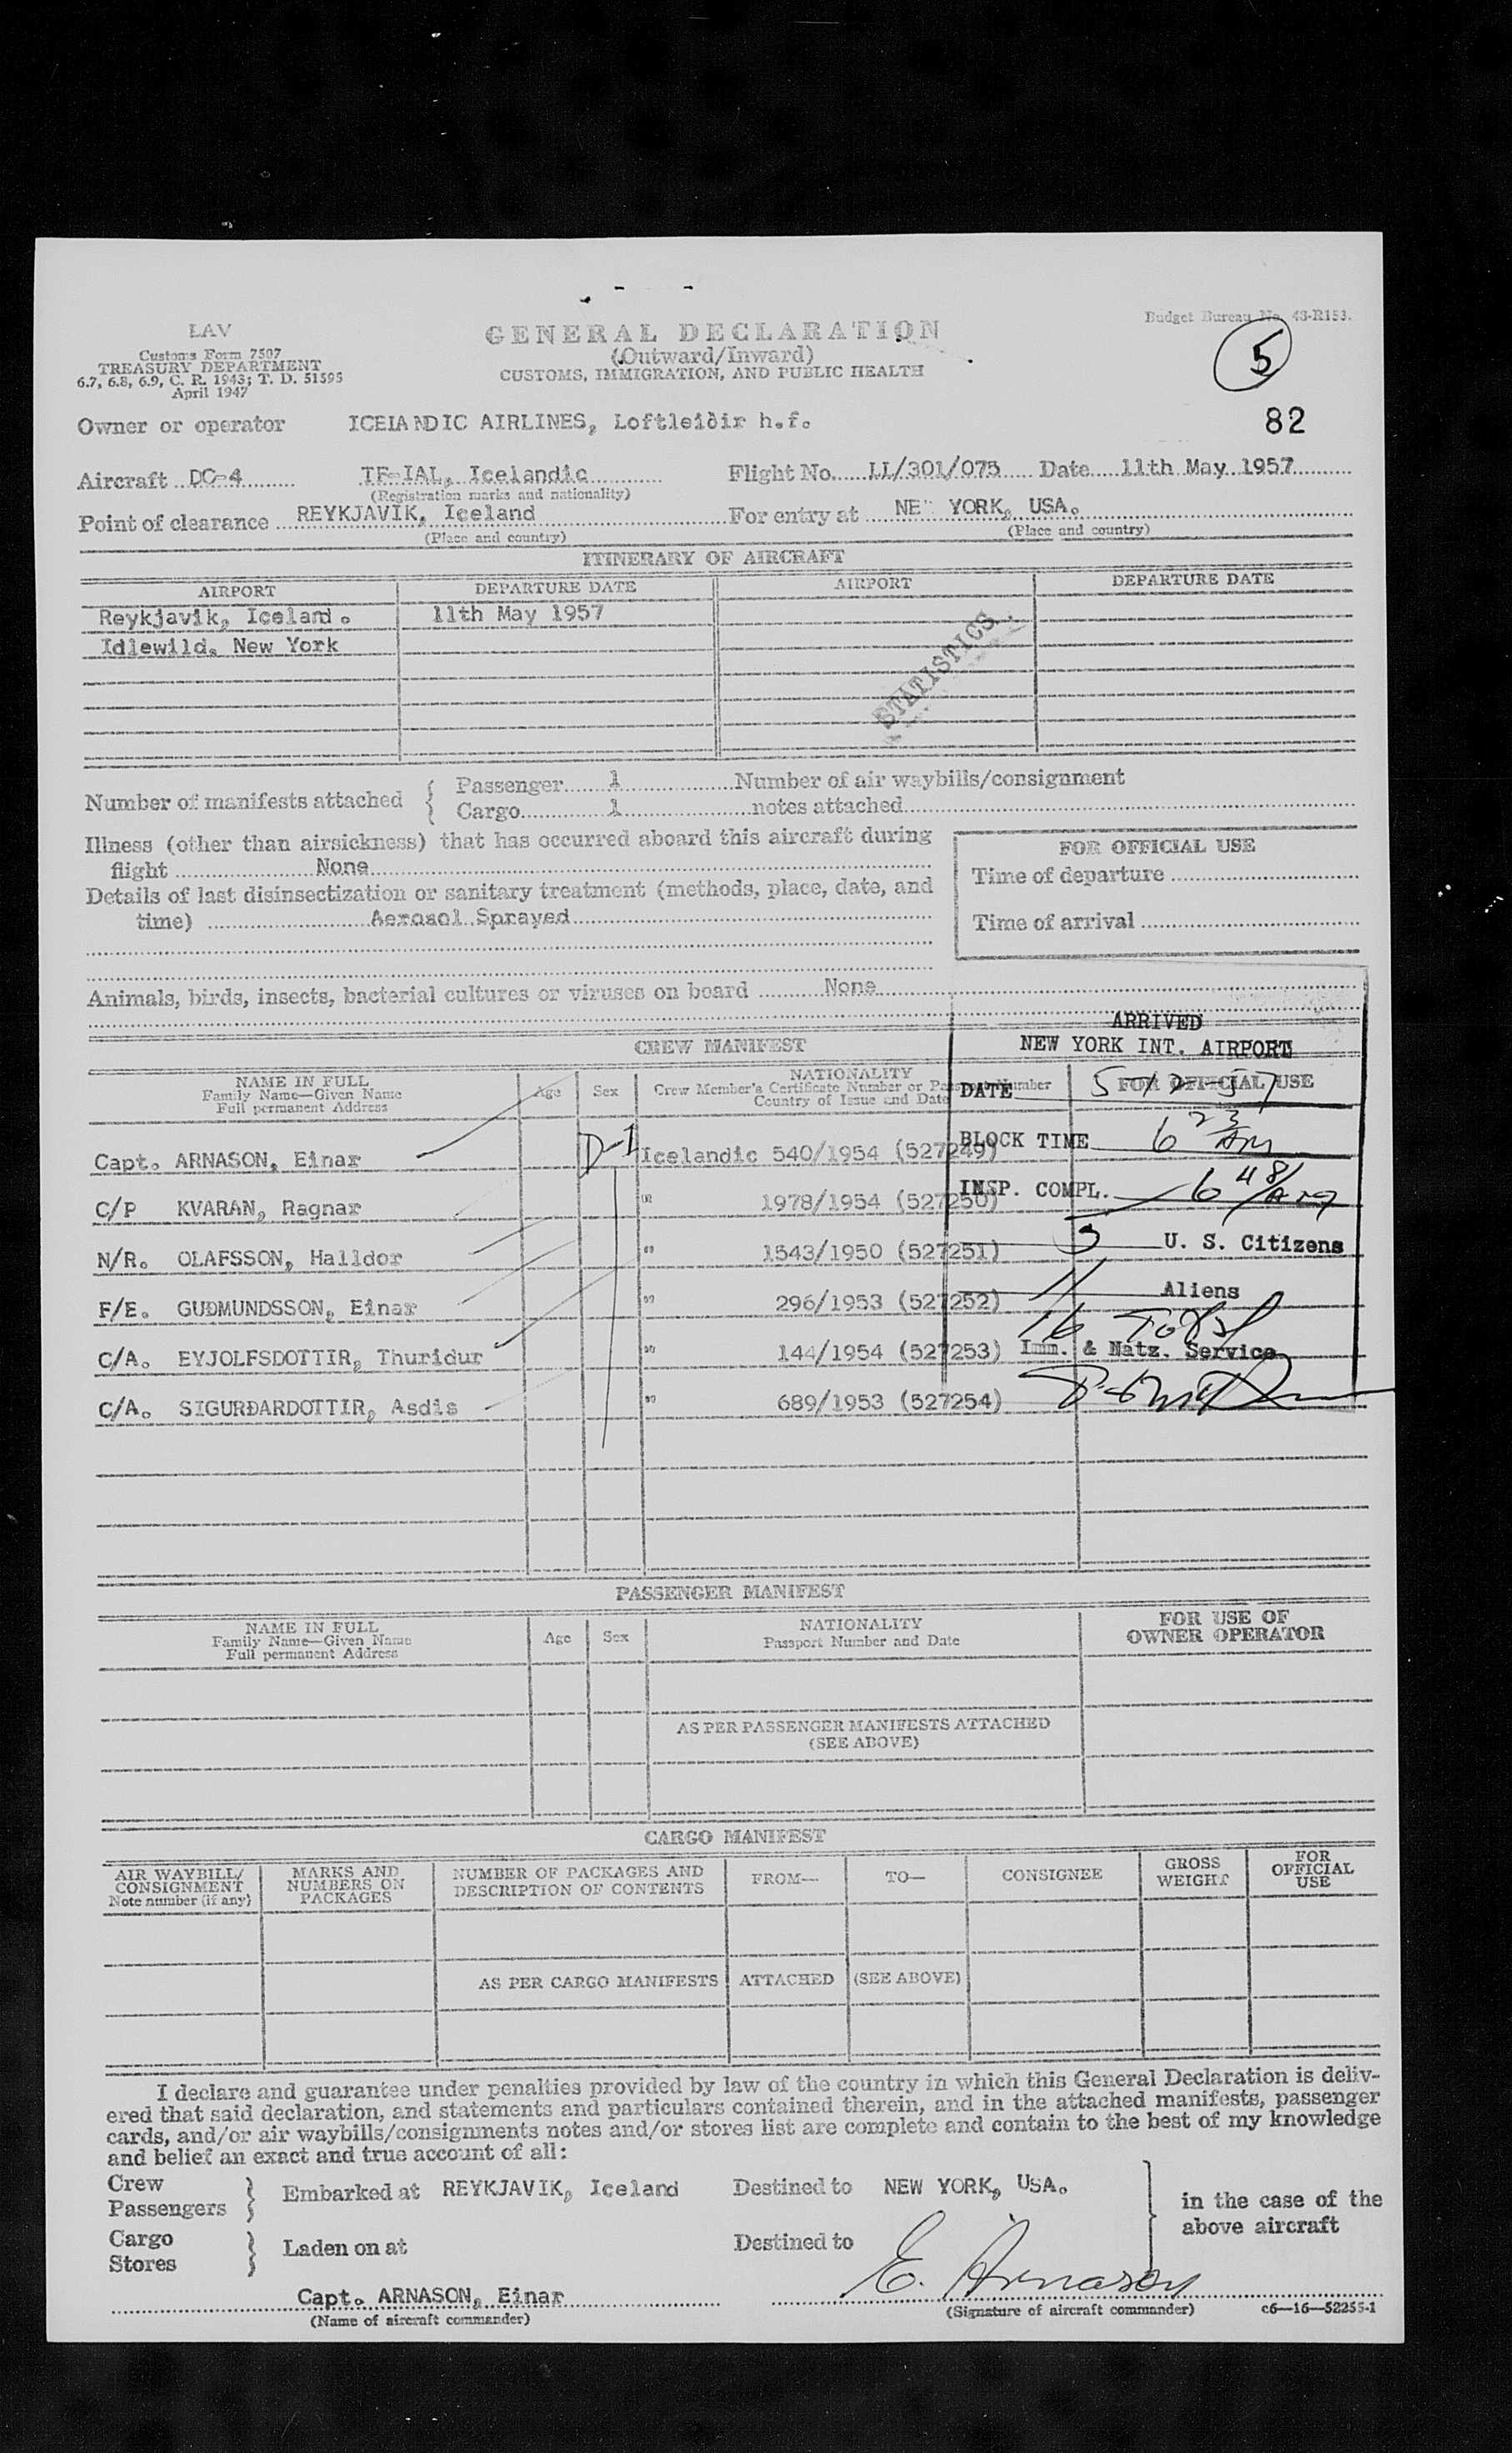 LAV
Customs Form 7507
TREASURY DEPARTMENT
6.7, 6.8, 6.9, C. R. 1943; T. D. 51595
April 1947
GENERAL DECLARATION
(Outward/Inward)
CUSTOMS, IMMIGRATION, AND PUBLIC HEALTH
Budget Bureau No. 43-R153.
5
82
Owner or operator ICELANDIC AIRLINES, Loftleiðir h.f.
Aircraft DC-4 TF-IAL, Icelandic Flight No. LL/301/075 Date 11th May 1957
(Registration marks and nationality)
Point of clearance REYKJAVIK, Iceland For entry at NE YORK, USA.
(Place and country) (Place and country)
ITINERARY OF AIRCRAFT
AIRPORT DEPARTURE DATE AIRPORT DEPARTURE DATE
Reykjavik, Iceland. 11th May 1957
Idlewild, New York
STATISTICS
Number of manifests attached { Passenger 1 Number of air waybills/consignment
Cargo 1 notes attached
Illness (other than airsickness) that has occurred aboard this aircraft during
flight None
Details of last disinsectization or sanitary treatment (methods, place, date, and
time) Aerosol Sprayed
FOR OFFICIAL USE
Time of departure
Time of arrival
Animals, birds, insects, bacterial cultures or viruses on board None
CREW MANIFEST
NAME IN FULL
Family Name—Given Name
Full permanent Address
Age Sex
NATIONALITY
Crew Member's Certificate Number or Passport Number
Country of Issue and Date
FOR OFFICIAL USE
ARRIVED
NEW YORK INT. AIRPORT
DATE 5-12-57
BLOCK TIME 6 23 AM
INSP. COMPL. 6 48 AM
5 U. S. Citizens
11 Aliens
16 Total
Imm. & Natz. Service
Capt. ARNASON, Einar D-1 Icelandic 540/1954 (527249)
C/P KVARAN, Ragnar " 1978/1954 (527250)
N/R. OLAFSSON, Halldor " 1543/1950 (527251)
F/E. GUÐMUNDSSON, Einar " 296/1953 (527252)
C/A. EYJOLFSDOTTIR, Thuridur " 144/1954 (527253)
C/A. SIGURÐARDOTTIR, Asdis " 689/1953 (527254)
PASSENGER MANIFEST
NAME IN FULL
Family Name—Given Name
Full permanent Address
Age Sex
NATIONALITY
Passport Number and Date
FOR USE OF
OWNER OPERATOR
AS PER PASSENGER MANIFESTS ATTACHED
(SEE ABOVE)
CARGO MANIFEST
AIR WAYBILL/
CONSIGNMENT
Note number (if any)
MARKS AND
NUMBERS ON
PACKAGES
NUMBER OF PACKAGES AND
DESCRIPTION OF CONTENTS
FROM—
TO—
CONSIGNEE
GROSS
WEIGHT
FOR
OFFICIAL
USE
AS PER CARGO MANIFESTS ATTACHED (SEE ABOVE)
I declare and guarantee under penalties provided by law of the country in which this General Declaration is deliv-
ered that said declaration, and statements and particulars contained therein, and in the attached manifests, passenger
cards, and/or air waybills/consignments notes and/or stores list are complete and contain to the best of my knowledge
and belief an exact and true account of all:
Crew
Passengers } Embarked at REYKJAVIK, Iceland Destined to NEW YORK, USA.
Cargo
Stores } Laden on at Destined to
} in the case of the
above aircraft
Capt. ARNASON, Einar E. Arnason
(Name of aircraft commander) (Signature of aircraft commander) c6—16—52255-1